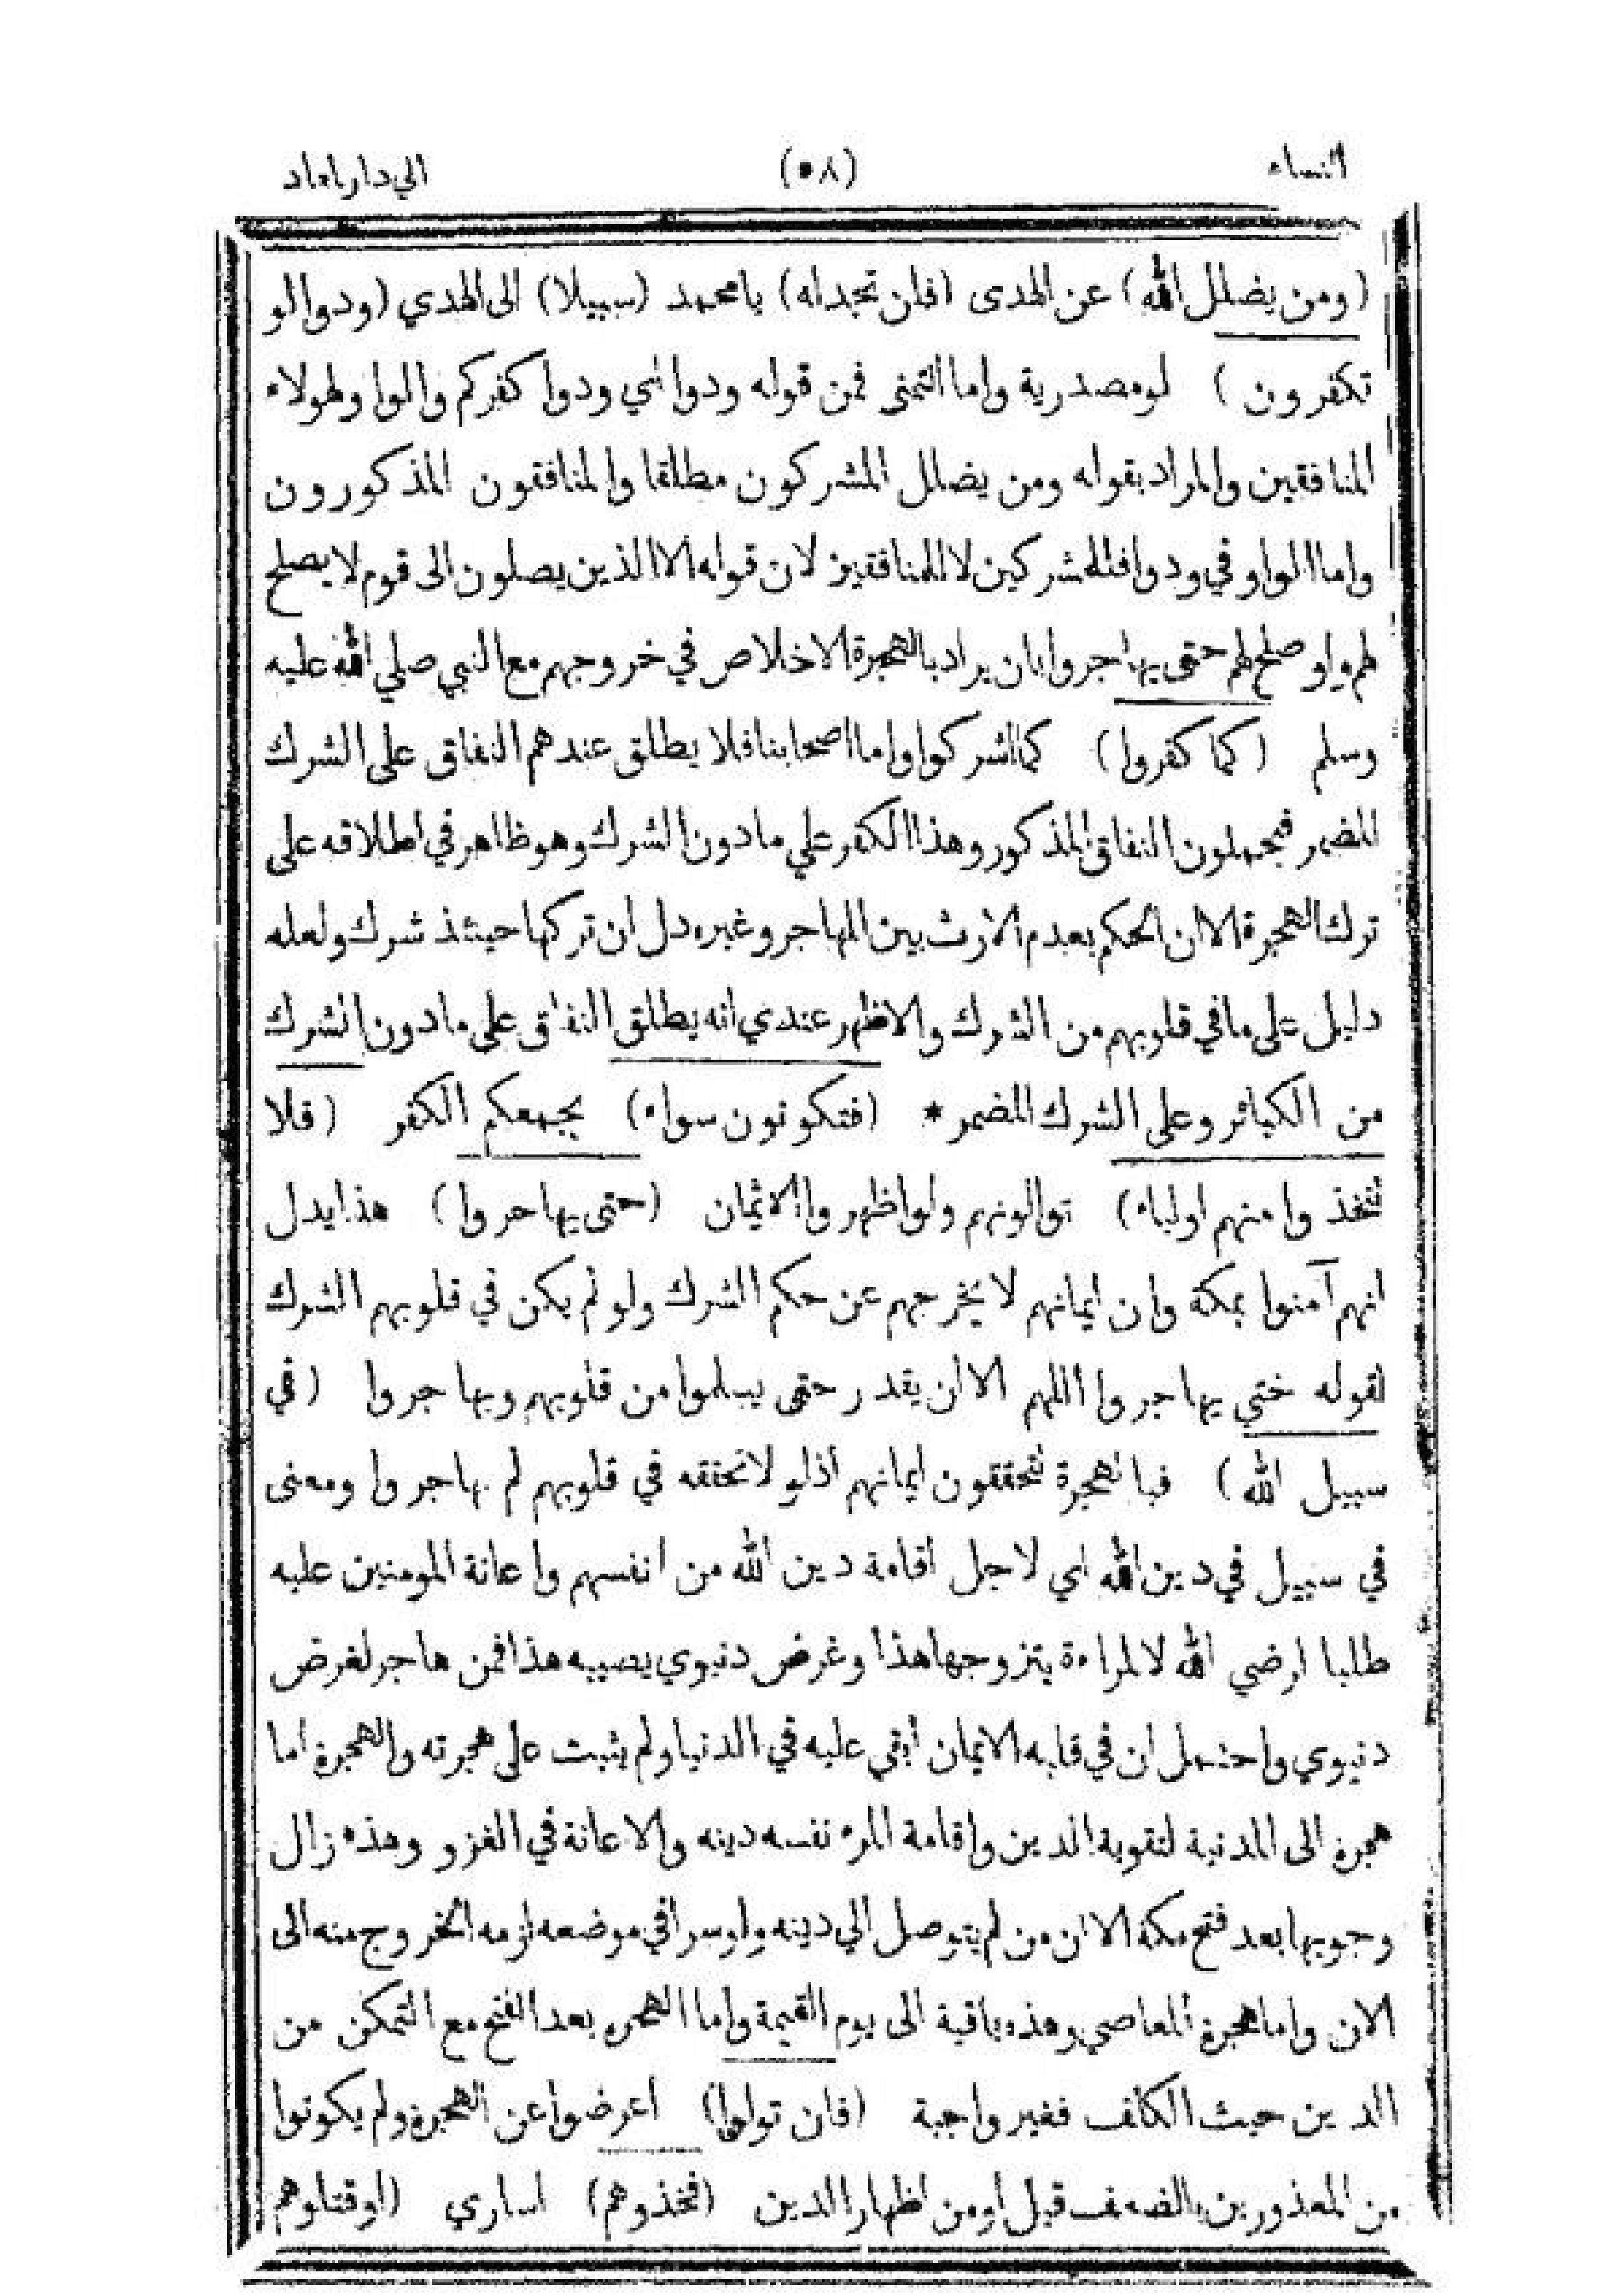 النساء (٥٨) الي دار المعاد
(ومن يضلل الله) عن الهدى (فلن تجد له) يا محمد (سبيلا) الى الهدي (ودوا لو
تكفرون) لو مصدرية واما التمنى فمن قوله ودوا اي ودوا كفركم والواو لهولاء
المنافقين والمراد بقوله ومن يضلل المشركون مطلقا والمنافقون المذكورون
واما الواو في ودوا فللمشركين لا للمنافقين لان قوله الا الذين يصلون الى قوم لا يصلح
لهم ولو صلح لهم حتى يهاجروا بان يراد بالهجرة الاخلاص في خروجهم مع النبي صلي الله عليه
وسلم (كما كفروا) كما اشركوا واما اصحابنا فلا يطلق عندهم النفاق على الشرك
المضمر فيحملون النفاق المذكور وهذا الكفر علي ما دون الشرك وهو ظاهر في اطلاقه على
ترك الهجرة الا ان الحكم بعدم الارث بين المهاجر وغيره دل ان تركها حينئذ شرك ولعله
دليل على ما في قلوبهم من الشرك والاظهر عندي انه يطلق النفاق على ما دون الشرك
من الكبائر وعلى الشرك المضمر * (فتكونون سواء) يجمعكم الكفر (فلا
تتخذوا منهم اولياء) توالونهم ولو اظهروا الايمان (حتى يهاجروا) هذا يدل
انهم آمنوا بمكة وان ايمانهم لا يخرجهم عن حكم الشرك ولو لم يكن في قلوبهم الشرك
لقوله حتي يهاجروا اللهم الا ان يقدر حتى يسلموا من قلوبهم ويهاجروا (في
سبيل الله) فبالهجرة تتحققون ايمانهم اذ لو لا تحققه في قلوبهم لم يهاجروا ومعنى
في سبيل في دين الله اي لاجل اقامة دين الله من انفسهم واعانة المومنين عليه
طلبا لرضي الله لا لمراءة يتزوجها هذا وغرض دنيوي يصيبه هذا فمن هاجر لغرض
دنيوي واحتمل ان في قلبه الايمان أبقي عليه في الدنيا ولم يثبت على هجرته والهجرة اما
هجرة الى المدنية لتقوية الدين واقامة المرء نفسه دينه والاعانة في الغزو وهذه زال
وجوبها بعد فتح مكة الا ان من لم يتوصل الي دينه ولو سرا في موضعه لزمه الخروج منه الى
الان واما هجرة المعاصي وهذه باقية الى يوم القيمة واما الهجره بعد الفتح مع التمكن من
الدين حيث الكلف فغير واجبة (فان تولوا) أعرضوا عن الهجرة ولم يكونوا
من المعذورين بالضعف قبل او من اظهار الدين (فخذوهم) اساري (اوقتلوهم